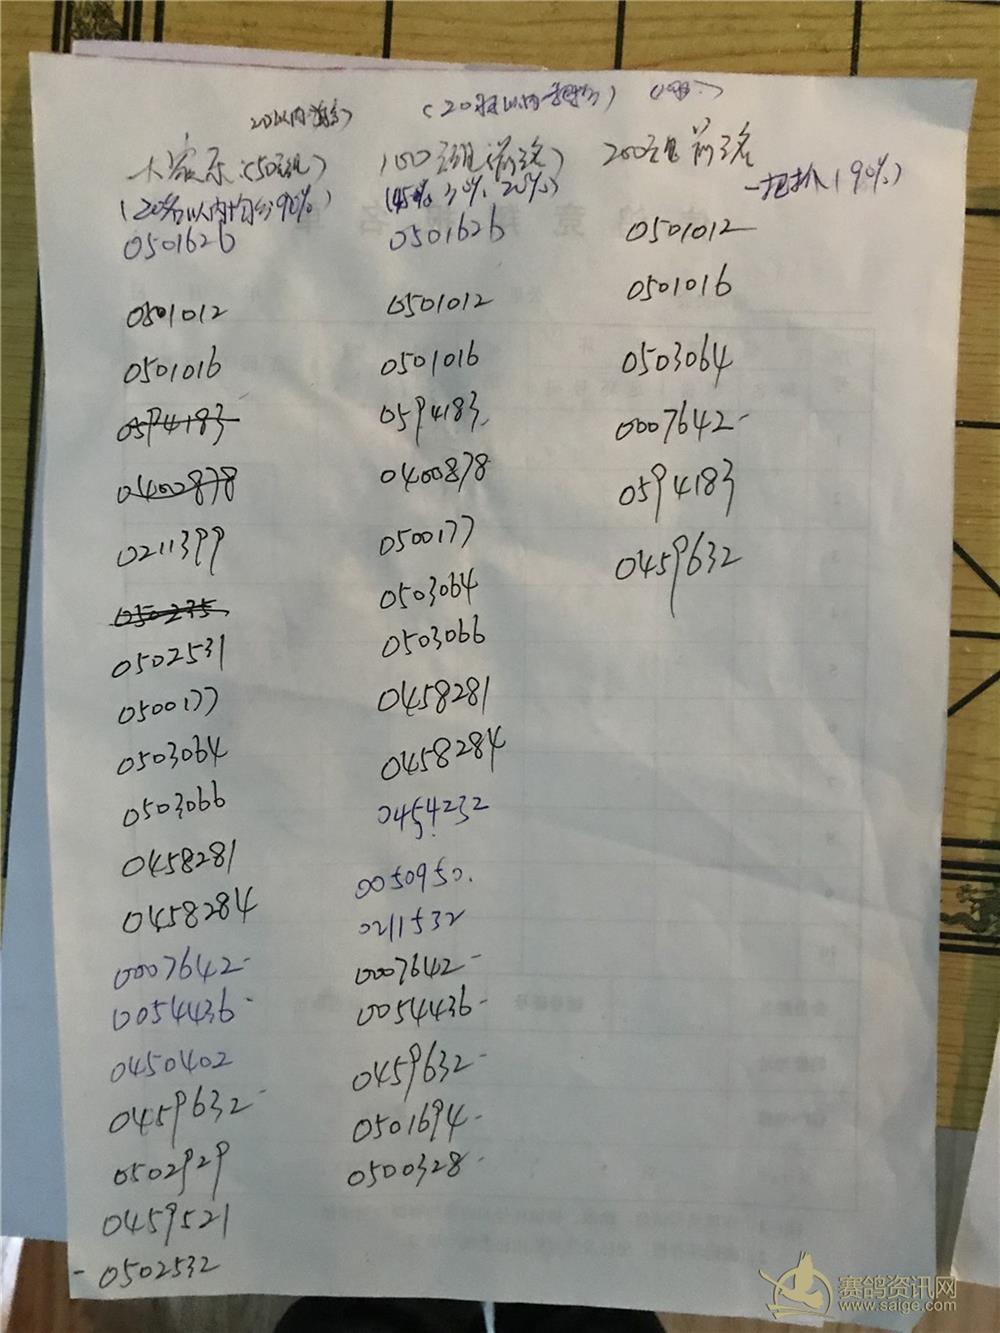 大客乐(50元组)
(20名以内均分90%)
0501626
0501012
0501016
0594183
0400878
0211399
050235
0502531
0500177
0503064
0503066
0458281
0458284
0007642-
0054436-
0450402
0459632-
0502929
0459521
-0502532
100元组(前3名)
(45% 30% 20%)
0501626
0501012
0501016
0594183
0400878
0500177
0503064
0503066
0458281
0458284
0454232
0050950.
0211532
0007642-
0054436-
0459632-
0501694-
0500328-
200元组 前3名
一把抓(90%)
0501012
0501016
0503064
0007642-
0594183
0459632
赛鸽资讯网
www.saige.com